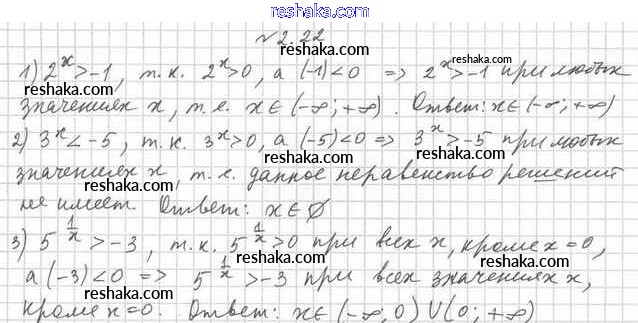 reshaka.com
№2.22
1) 2^x > -1, т.к. 2^x > 0, а (-1) < 0 => 2^x > -1 при любых
значениях x, т.е. x∈(-∞; +∞). Ответ: x∈(-∞; +∞)
2) 3^x < -5, т.к. 3^x > 0, а (-5) < 0 => 3^x > -5 при любых
значениях x, т.е. данное неравенство решений
не имеет. Ответ: x∈∅
3) 5^(1/x) > -3, т.к. 5^(1/x) > 0 при всех x, кроме x=0,
а (-3) < 0 => 5^(1/x) > -3 при всех значениях x,
кроме x=0. Ответ: x∈(-∞; 0)∪(0; +∞)
reshaka.com
reshaka.com
reshaka.com
reshaka.com
reshaka.com
reshaka.com
reshaka.com
reshaka.com
reshaka.com
reshaka.com
reshaka.com
reshaka.com